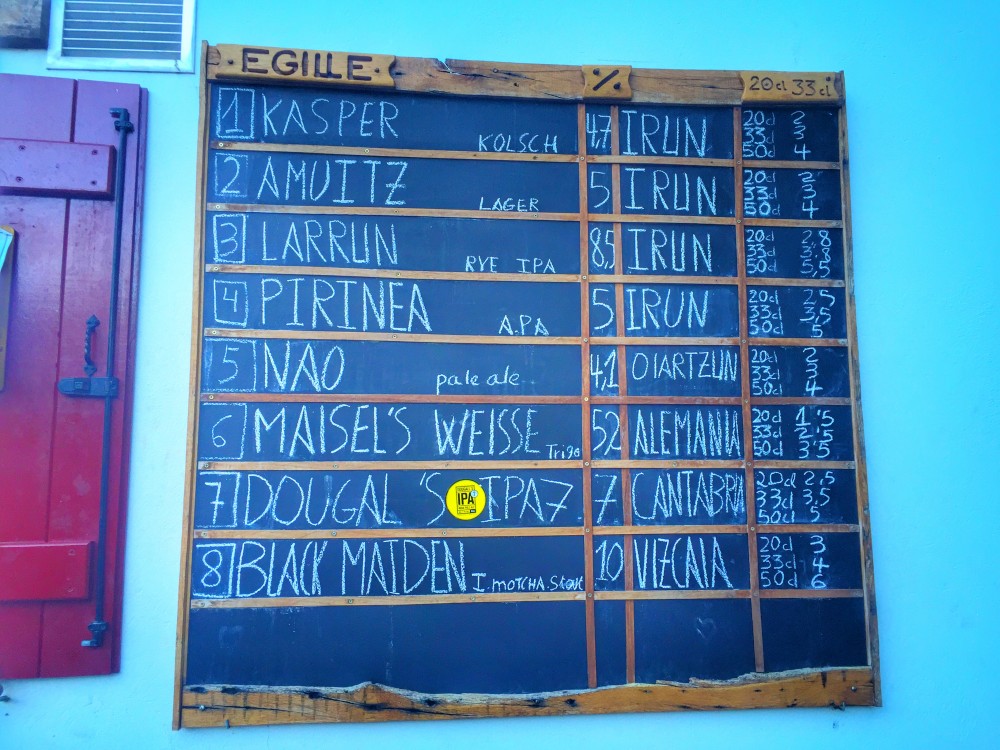 EGILLE % 20cl 33cl
1 KASPER KOLSCH 4,7 IRUN 20cl 2
33cl 3
50cl 4
2 AMUITZ LAGER 5 IRUN 20cl 2
33cl 3
50cl 4
3 LARRUN RYE IPA 8,5 IRUN 20cl 2,8
33cl 3,8
50cl 5,5
4 PIRINEA A.PA 5 IRUN 20cl 2,5
33cl 3,5
50cl 5
5 NAO pale ale 4,1 OIARTZUN 20cl 2
33cl 3
50cl 4
6 MAISEL'S WEISSE Trigo 52 ALEMANIA 20cl 1'5
33cl 2'5
50cl 3'5
7 DOUGAL'S IPA IPA7 7 CANTABRIA 20cl 2,5
33cl 3,5
50cl 5
8 BLACK MAIDEN I.MOTCHA.Stout 10 VIZCAIA 20cl 3
33cl 4
50cl 6